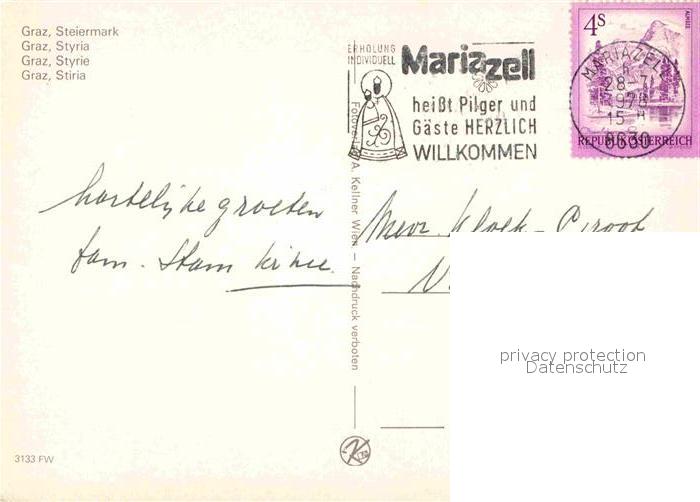 Graz, Steiermark
Graz, Styria
Graz, Styrie
Graz, Stiria
ERHOLUNG
INDIVIDUELL
Mariazell
heißt Pilger und
Gäste HERZLICH
WILLKOMMEN
4S
ALMSEE
REPUBLIK ÖSTERREICH
MARIAZELL
28.-7.
15
8630
hartelijke groeten
fam. Stam
Mevr. Kloek-
Fotoverlag A. Kellner Wien – Nachdruck verboten
privacy protection
Datenschutz
3133 FW